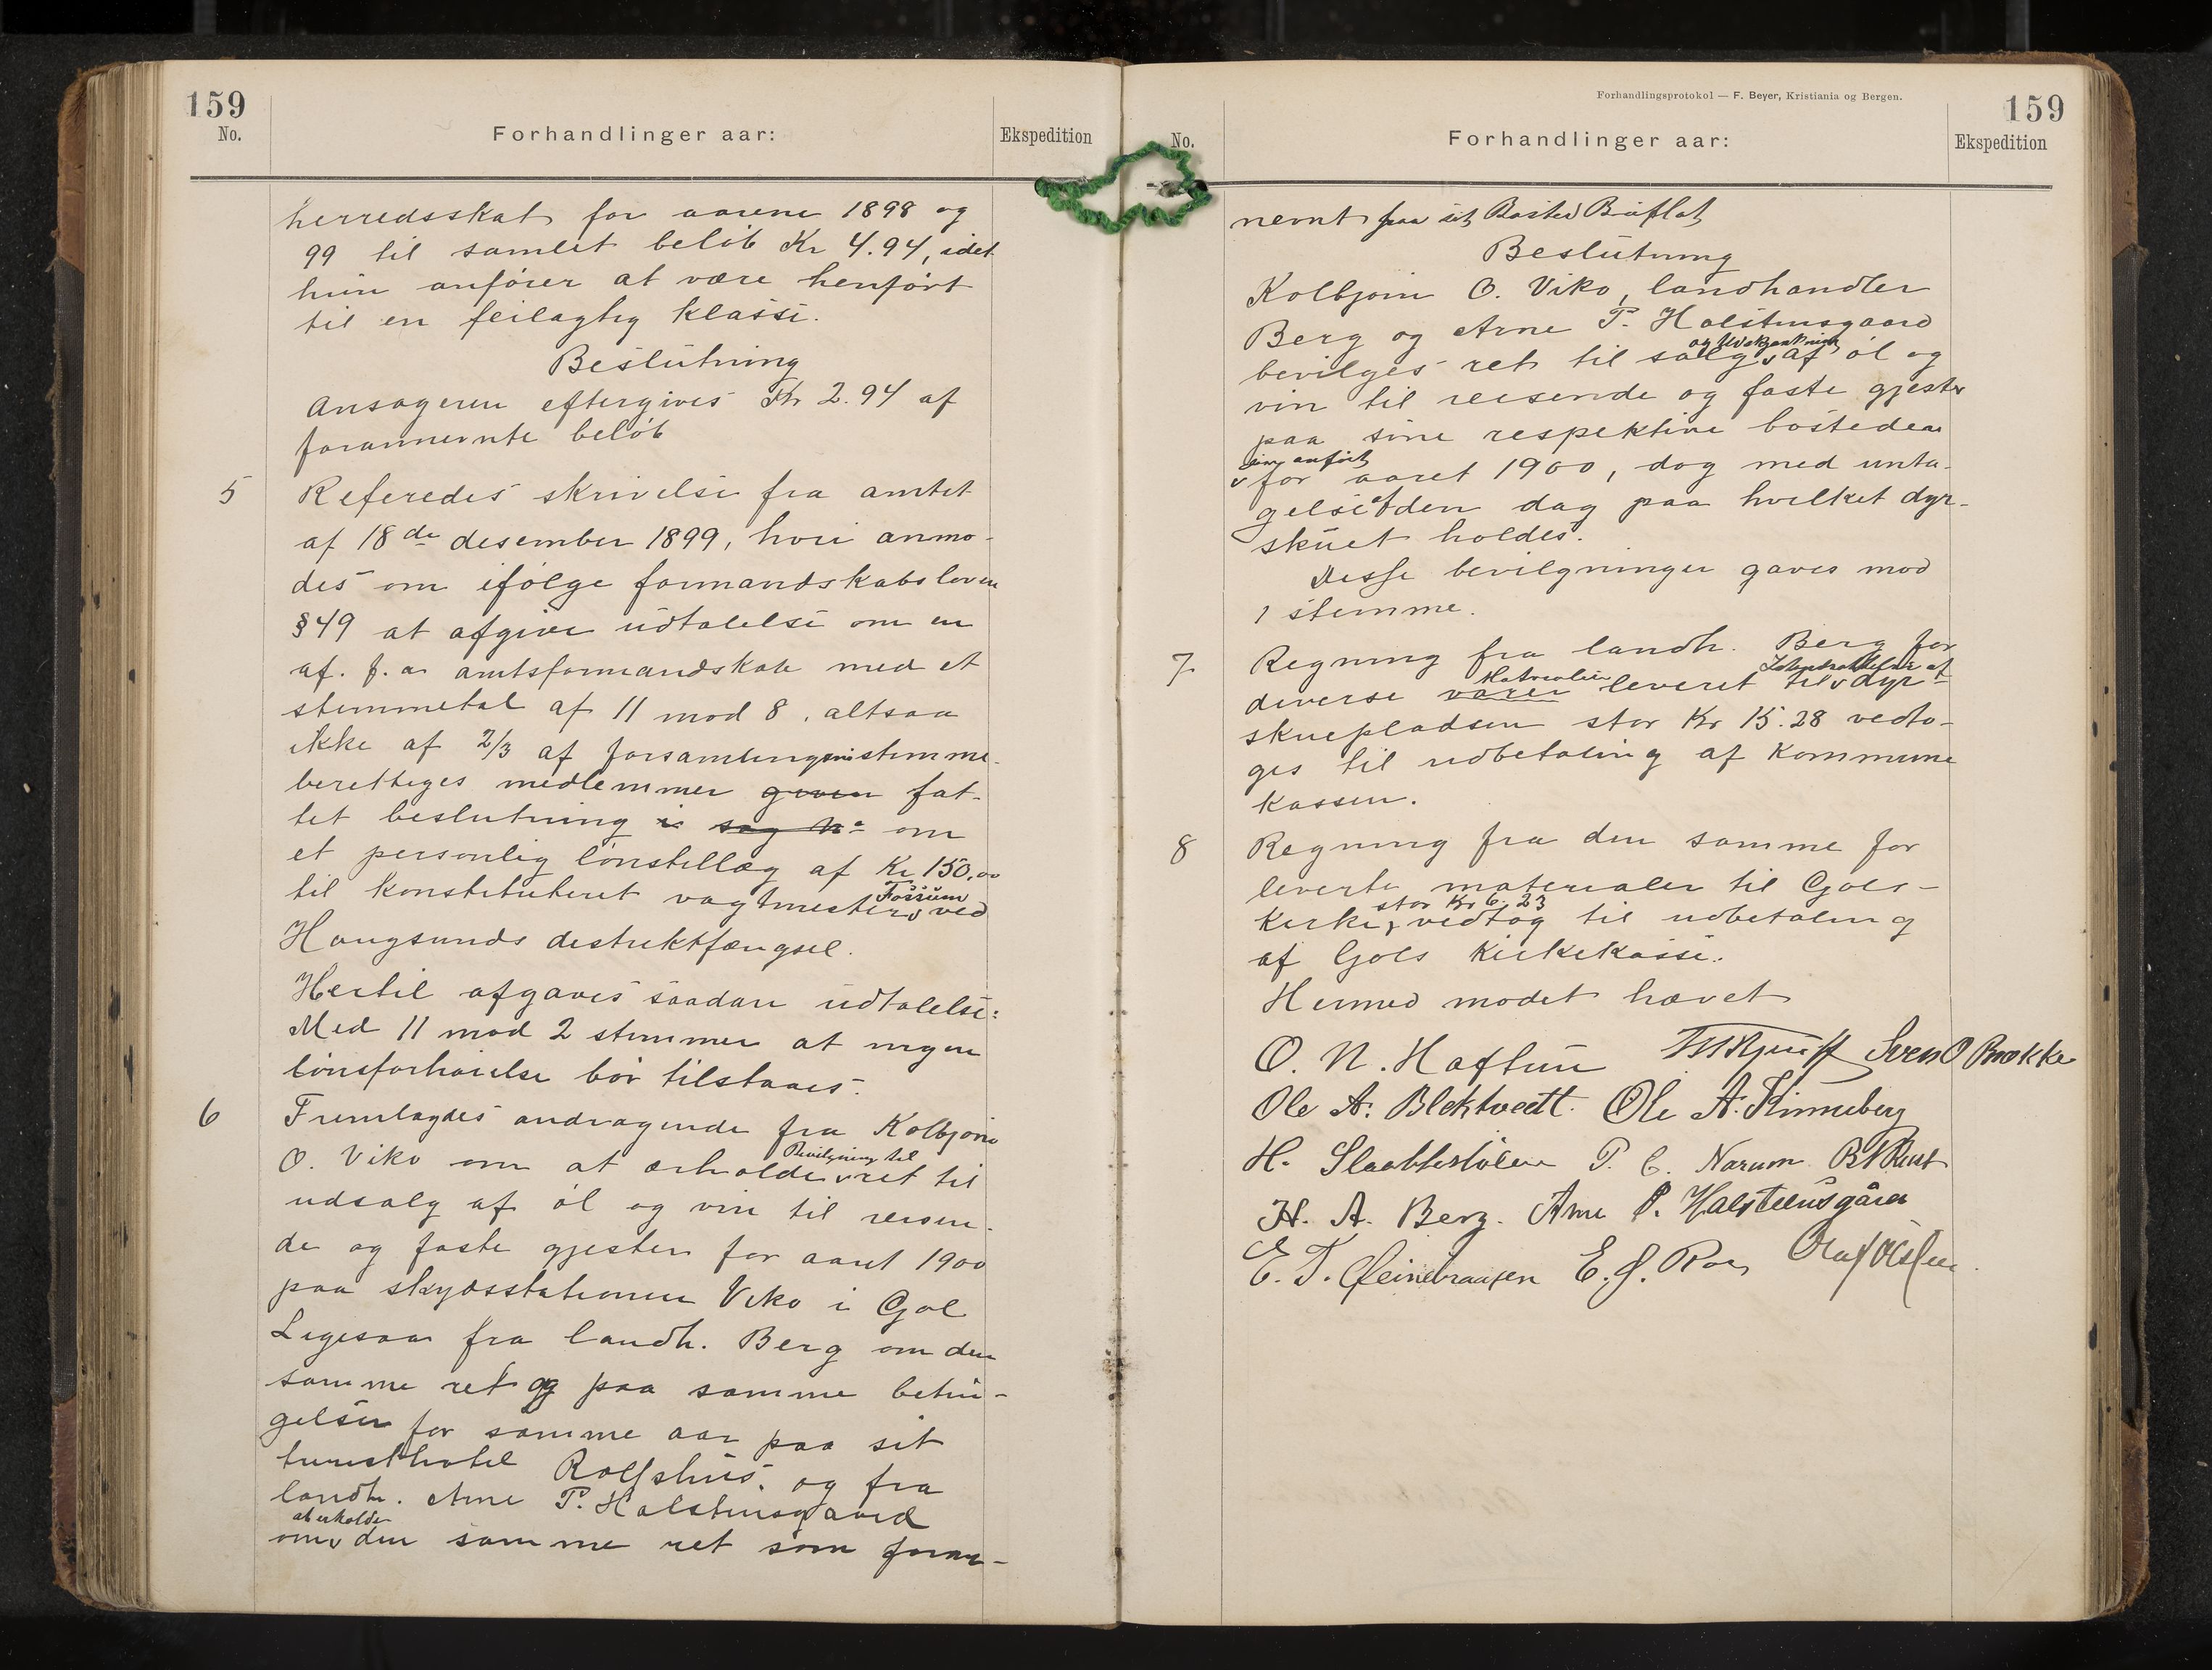 159
No.
Forhandlinger aar:
Ekspedition
herredsskat for aarene 1898 og
99 til samlet beløb Kr 4.94, idet
hun anfører at være henført
til en feilagtig klasse.
Beslutning
Ansøgeren eftergives Kr 2.94 af
forannevnte beløb
5 Referedes skrivelse fra amtet
af 18de desember 1899, hvori anmo-
des om ifølge formandskabsloven
§49 at afgive udtalelse om en
af. f. a. amtsformandskab med et
stemmetal af 11 mod 8, altsaa
ikke af 2/3 af forsamlingens stemme-
berettiges medlemmer given fat-
tet beslutning i sag No om
et personlig lønstillæg af Kr 150,00
Fossum
til konstitueret vagtmester v ved
Haugsunds destriktfængsel.
Hertil afgaves saadan udtalelse:
Med 11 mod 2 stemmer at ingen
lønsforhøielse bør tilstaaes.
6 Fremlagdes andragende fra Kolbjørn
Bevilgning til
O. Viko om at erholde v ret til
udsalg af øl og vin til reisen-
de og faste gjester for aaret 1900
paa skydsstationen Viko i Gol
Ligesaa fra landh. Berg om den
samme ret og paa samme betin-
gelser for samme aar paa sit
turisthotel Rolfshus, og fra
landh. Arne P. Halstensgaard
at erholde
om v den samme ret som foran-
Forhandlingsprotokol — F. Beyer, Kristiania og Bergen.
159
No.
Forhandlinger aar:
Ekspedition
nevnt paa sit Bosted Buflat
Beslutning
Kolbjørn O. Viko, landhandler
Berg og Arne P. Halstensgaard
og Udskjænkning
bevilges ret til salg v af øl og
vin til reisende og faste gjester
paa sine respektive bosteder
som anført
v for aaret 1900, dog med unta-
gelse af den dag paa hvilket dyr-
skuet holdes.
Disse bevilgninger gaves mod
1 stemme.
7 Regning fra landh. Berg for
Materialier Istandsættelse af
diverse varer leveret til v dyr-
skuepladsen stor Kr 15.28 vedto-
ges til udbetaling af Kommune
kassen.
8 Regning fra den samme for
leverte materialer til Gols-
stor Kr 6.23
kirke, vedtog til udbetaling
af Gols Kirkekasse.
Hermed mødet hævet
O. N. Haftun Sven O Brøkke
Ole A. Blektvedt. Ole A. Finneberg
H. Slaattestølen P. C. Narum B N Rust
H. A. Berg. Arne P. Halsteensgård
E. T. Gleinebraaten E. J. Roe Olaf Olssen